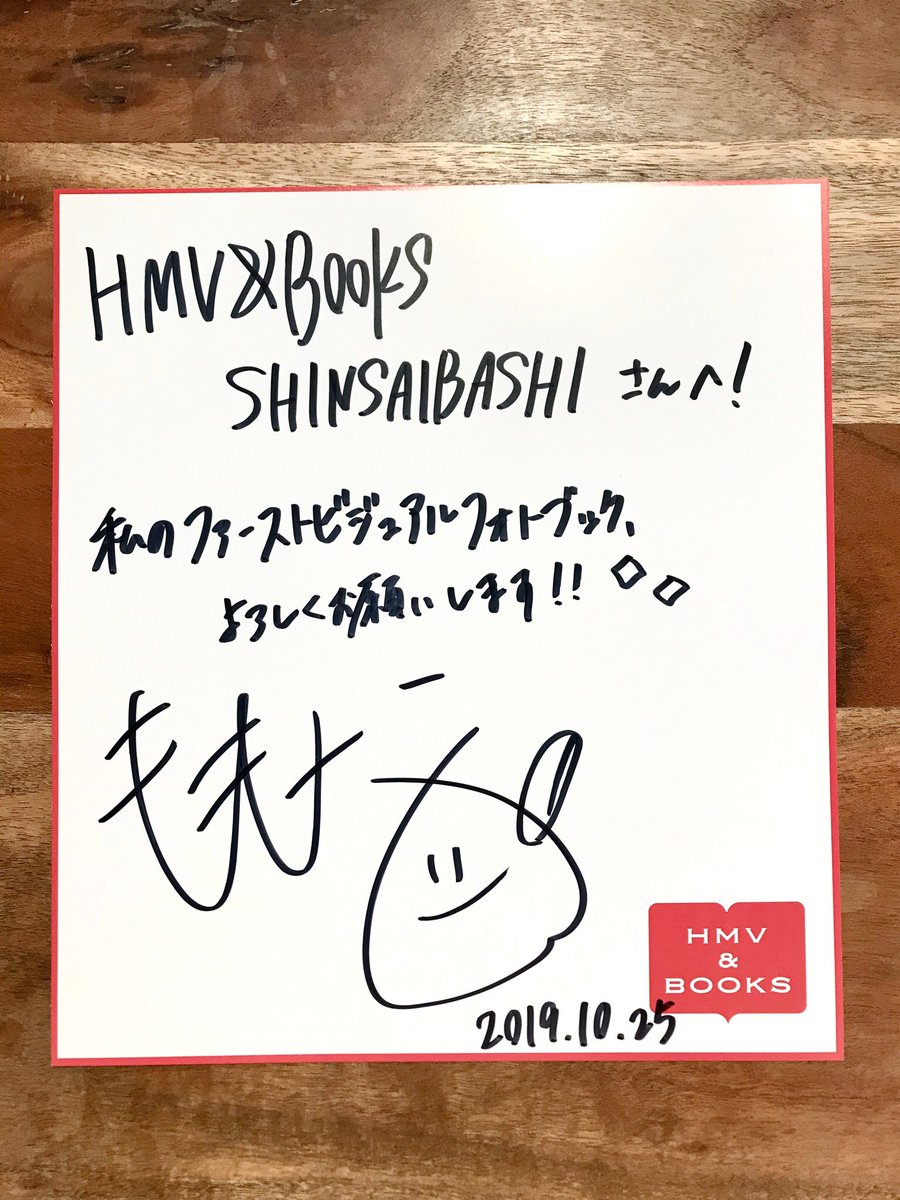 HMV&BOOKS
SHINSAIBASHI さんへ!
私のファーストビジュアルフォトブック、
よろしくお願いします!!◇◇
HMV
&
BOOKS
2019.10.25